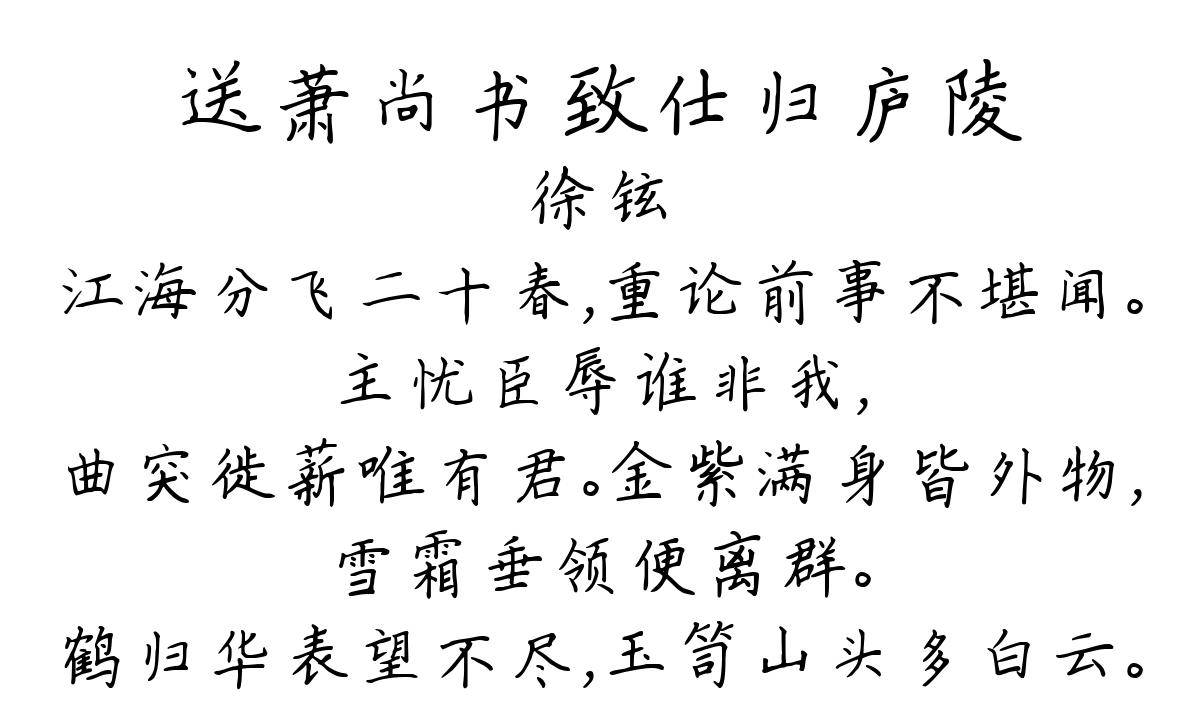 送萧尚书致仕归庐陵
徐铉
江海分飞二十春,重论前事不堪闻。
主忧臣辱谁非我,
曲突徙薪唯有君。金紫满身皆外物,
雪霜垂领便离群。
鹤归华表望不尽,玉笥山头多白云。